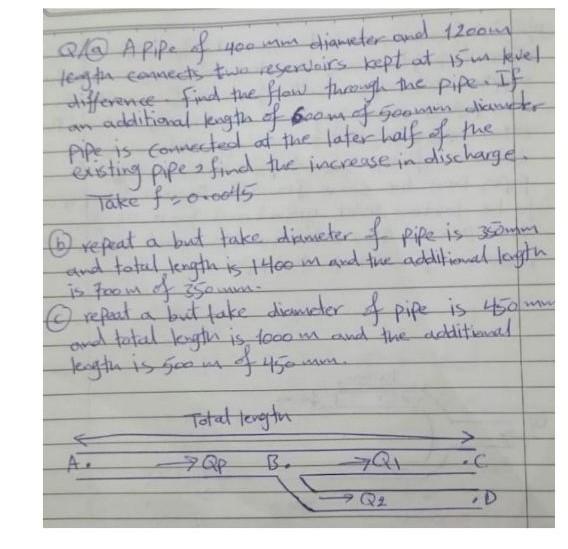 Q1/ⓐ A pipe of 400 mm diameter and 1200m
length connects two reservoirs kept at 15 m level
difference. find the flow through the pipe. If
an additional length of 600m of 500mm diameter
pipe is connected at the later half of the
existing pipe, find the increase in discharge.
Take f = 0.0045
ⓑ repeat a but take diameter of pipe is 350mm
and total length is 1400 m and the additional length
is 700m of 350mm.
ⓒ repeat a but take diameter of pipe is 450 mm
and total length is 1000 m and the additional
length is 500 m of 450 mm.
Total length
A. → QP B. → Q1 .C
→ Q2 .D